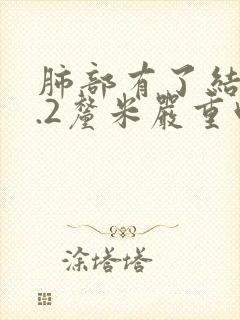 肺部有了結
.2釐米嚴重
涂塔塔